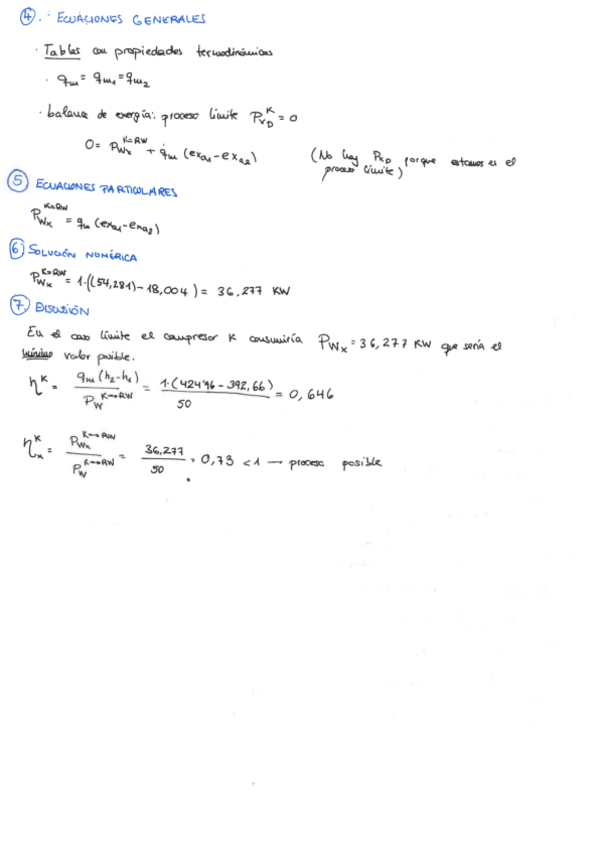 ④.· ECUACIONES GENERALES
· Tablas con propiedades termodinámicas
· qm = qm1 = qm2
· balance de energía: proceso límite P_XD^K = 0
0 = P_Wx^K=RW + qm (exa1 - exa2) (No hay P_XD porque estamos en el
proceso límite)
⑤ ECUACIONES PARTICULARES
P_Wx^K=RW = qm (exa1 - exa2)
⑥ SOLUCIÓN NUMÉRICA
P_Wx^K=RW = 1·((54,281) - 18,004) = 36,277 KW
⑦. DISCUSIÓN
En el caso límite el compresor K consumiría P_Wx = 36,277 KW que sería el
mínimo valor posible.
η^K = qm (h2 - h1) / P_W^K→RW = 1·(424'96 - 392,66) / 50 = 0,646
η_x^K = P_Wx^K→RW / P_W^K→RW = 36,277 / 50 = 0,73 < 1 → proceso posible